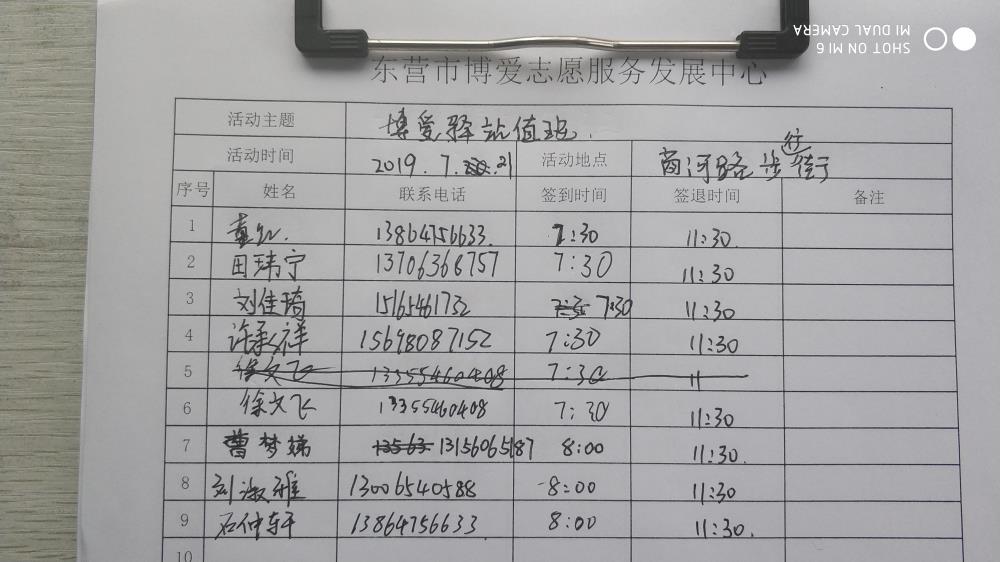 SHOT ON MI 6
MI DUAL CAMERA
东营市博爱志愿服务发展中心
活动主题 博爱驿站值班.
活动时间 2019.7.21 活动地点 商河路步行街
序号 姓名 联系电话 签到时间 签退时间 备注
1 13864756633. 7:30 11:30.
2 田玮宁 13706368757 7:30 11:30
3 刘佳琦 15165461732 7:30 11:30
4 许承祥 15698087152 7:30 11:30
5 徐文飞 13355460408 7:30 11
6 徐文飞 13355460408 7:30 11:30
7 曹梦娣 13563 13156065187 8:00 11:30.
8 刘淑雅 13006540588 8:00 11:30
9 石仲轩 13864756633 8:00 11:30.
10